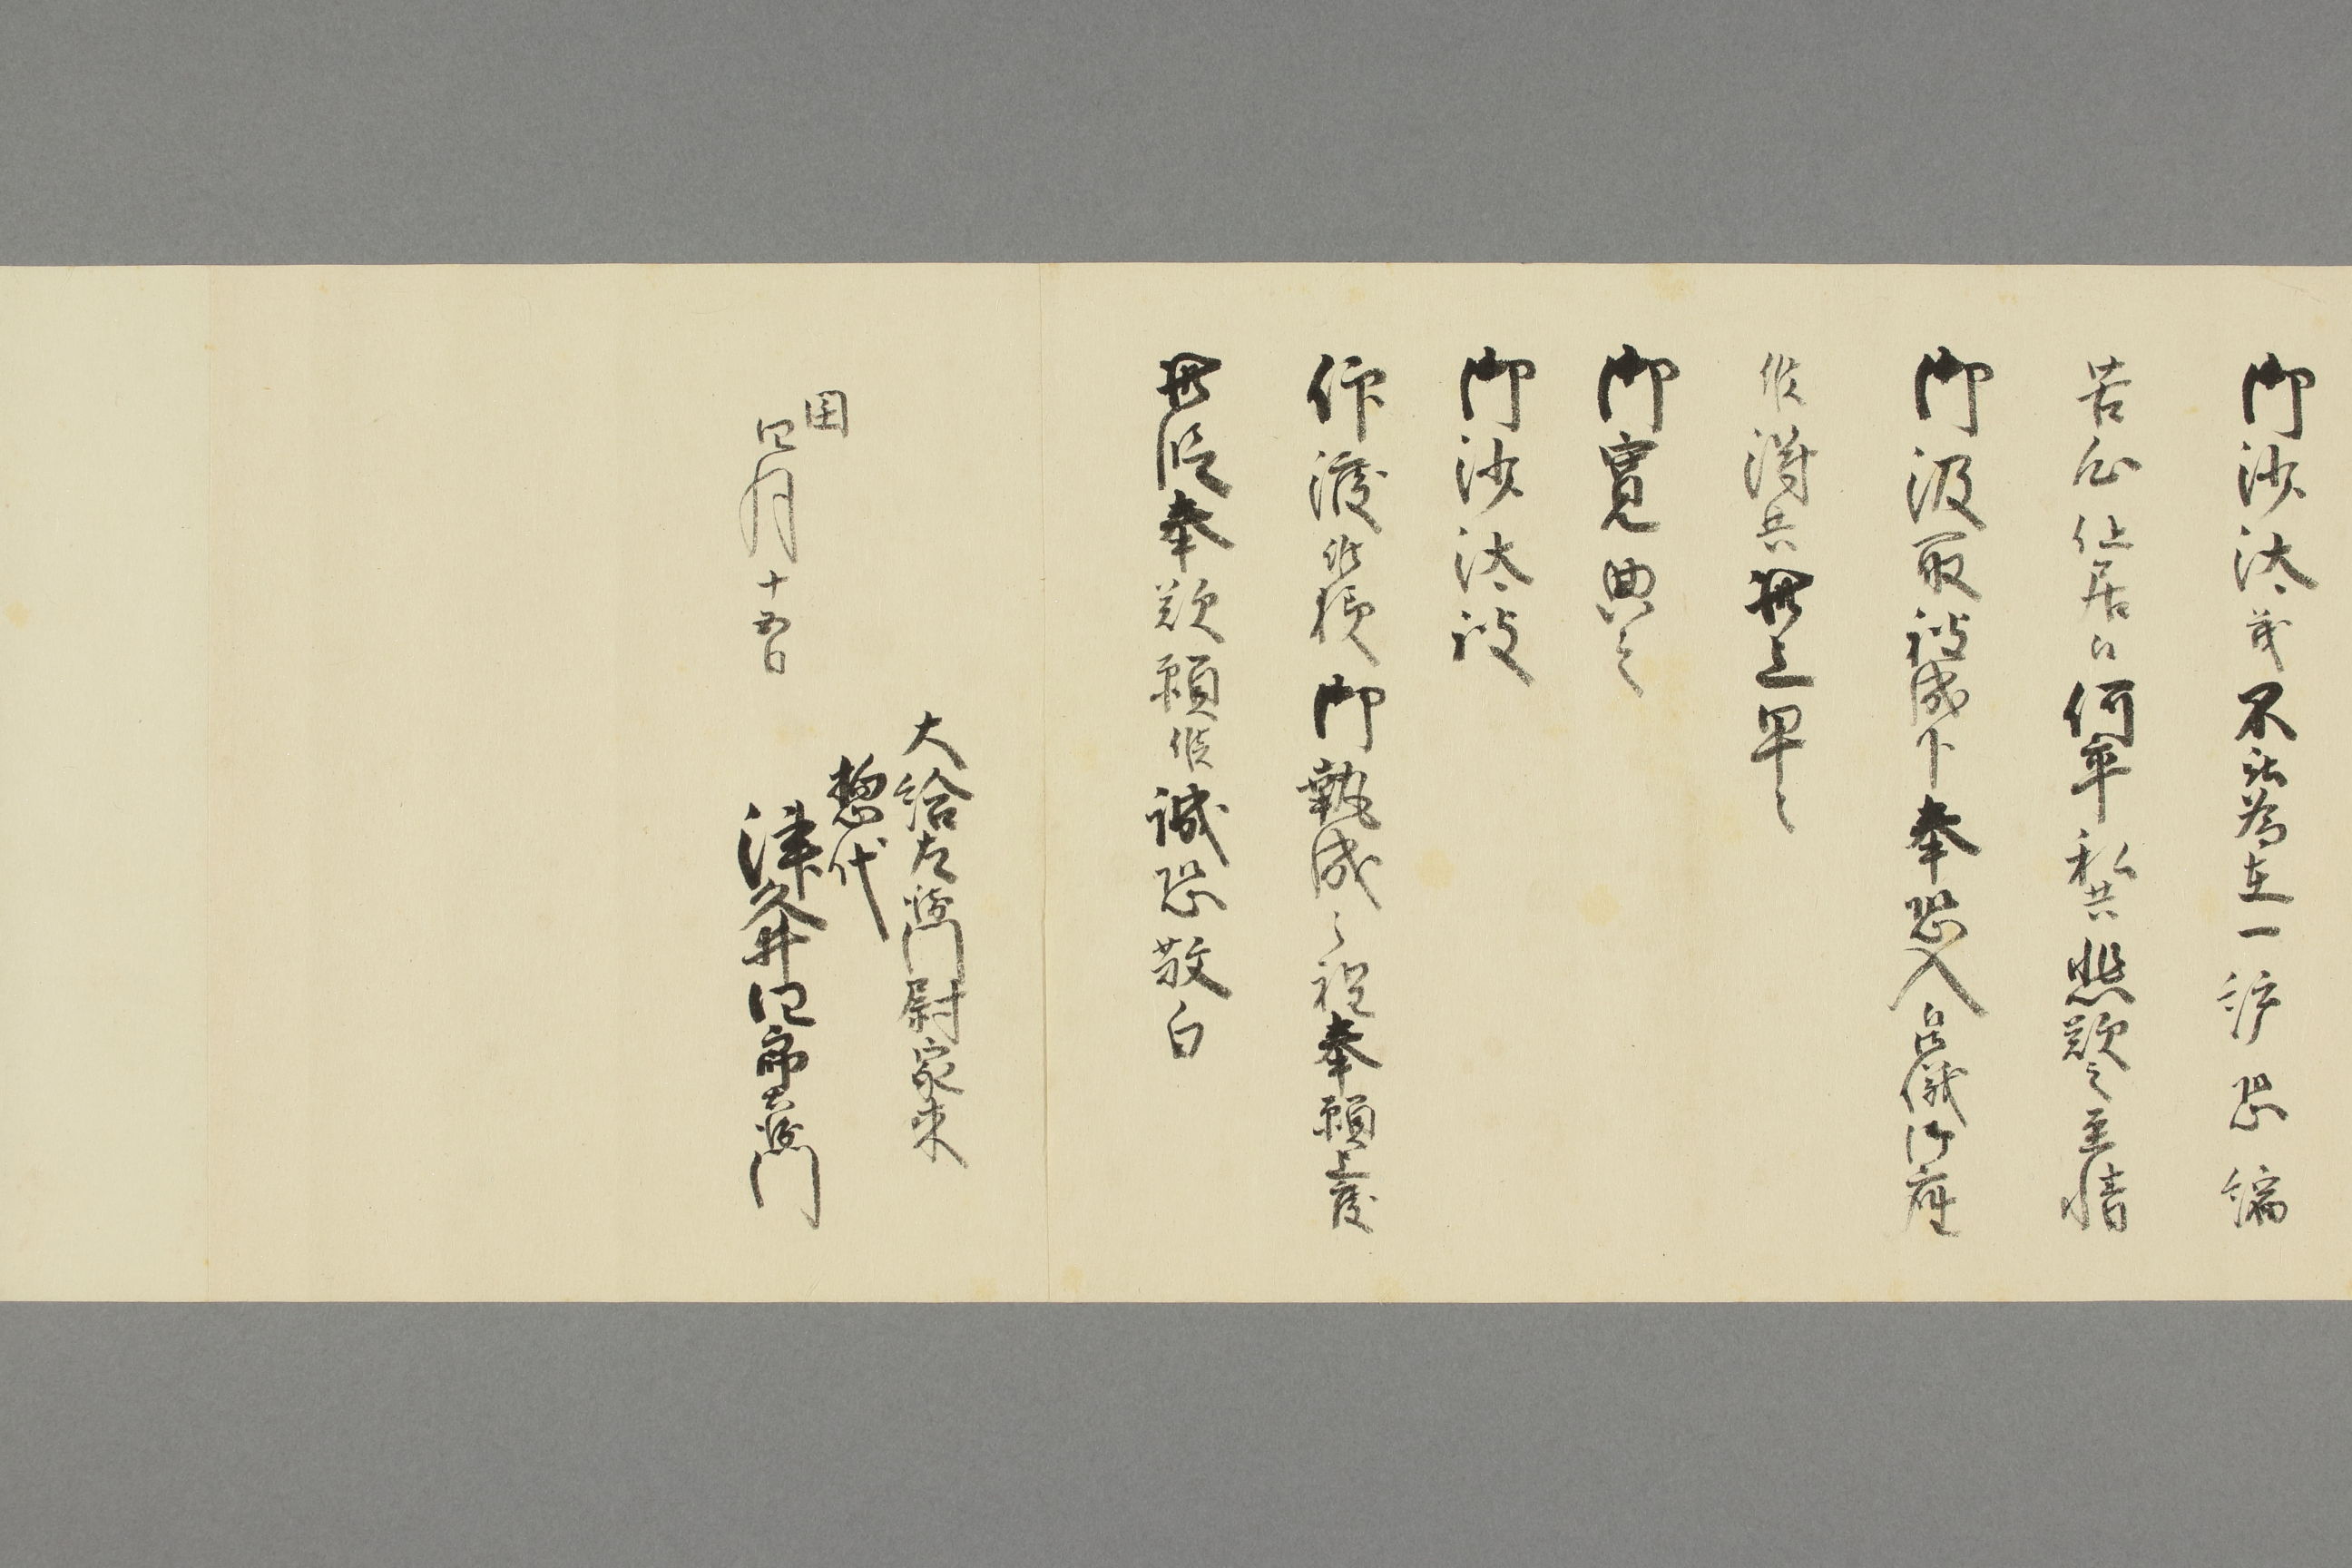 御沙汰茂不被為在一統恐縮
苦心仕居候何卒私共悲歎之至情
御汲取被成下奉恐入候儀御座
候得共此上早々
御寛典之
御沙汰被
仰渡候様御執成之程奉願上度
此段奉歎願候誠恐敬白
大給左衛門尉家来
惣代
津久井四郎右衛門
閏
四月十五日